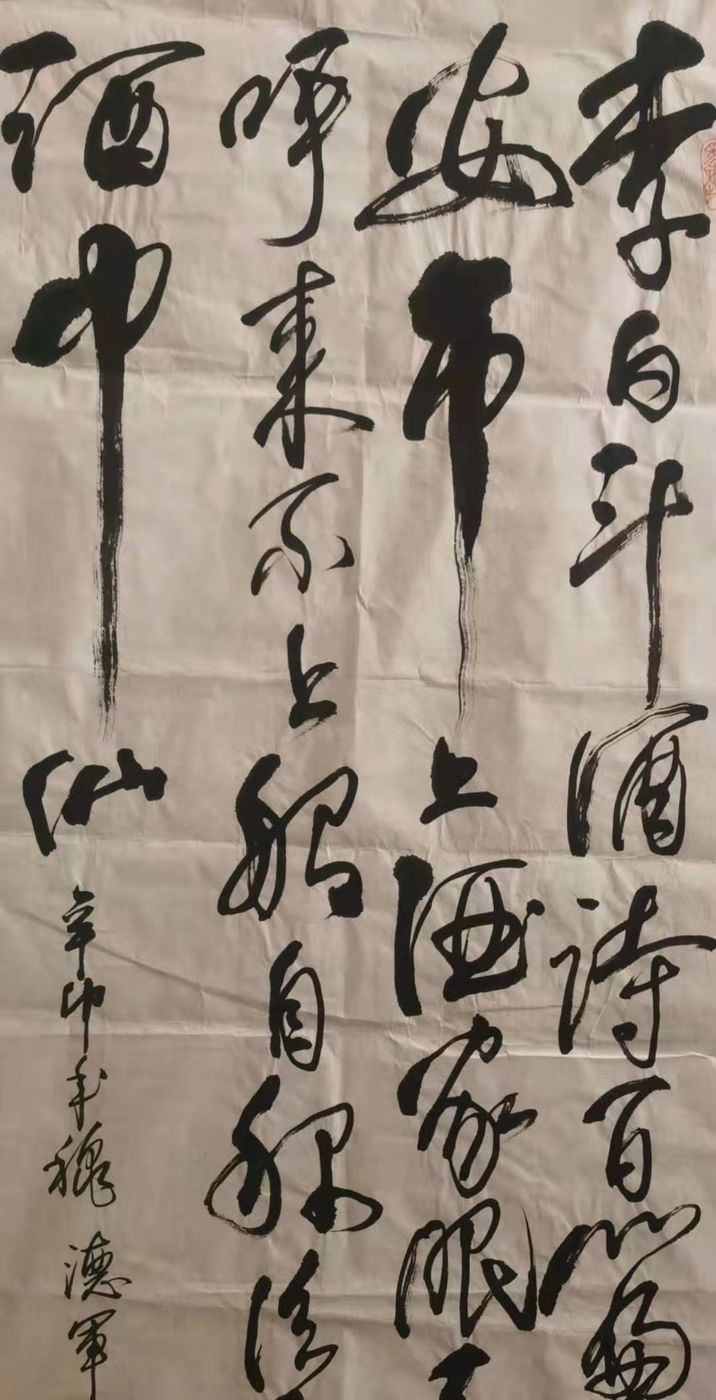 李白斗酒诗百篇
安市上酒家眠
呼来不上船自称臣
酒中仙
辛卯年魏德軍